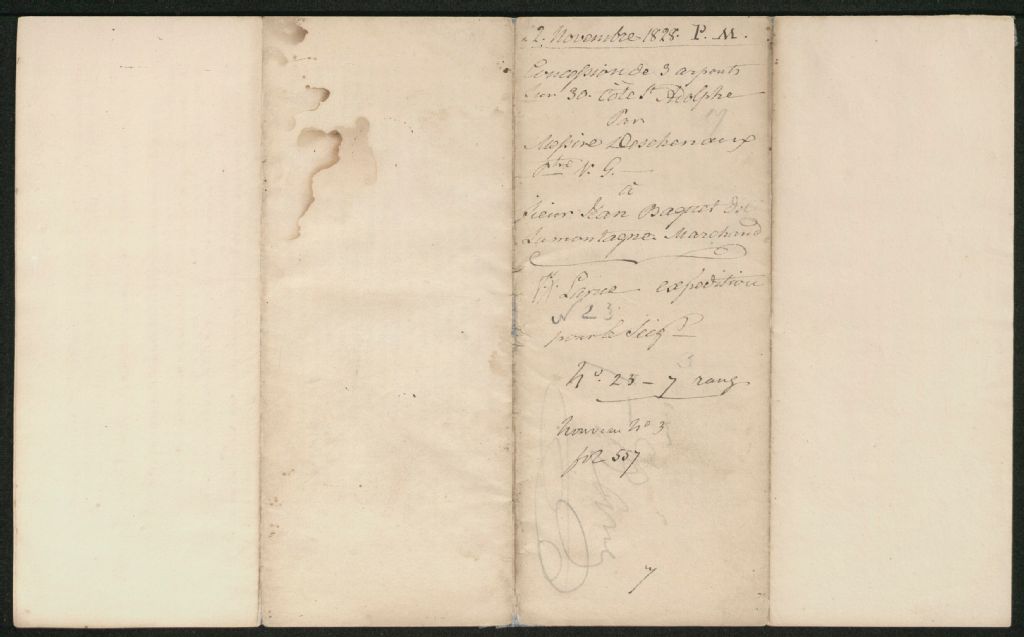 22. Novembre 1828. P. M.
Concession de 3 arpents
sur 30. Côte St Adolphe
Par
Messire Deschenaux
ptre V. G.
à
Sieur Jean Baquet dit
Lamontagne Marchand
1re expedition
N 23
pour le Seigr
No. 23 - 7 rang
3
nouveau No 3
fol 557
7